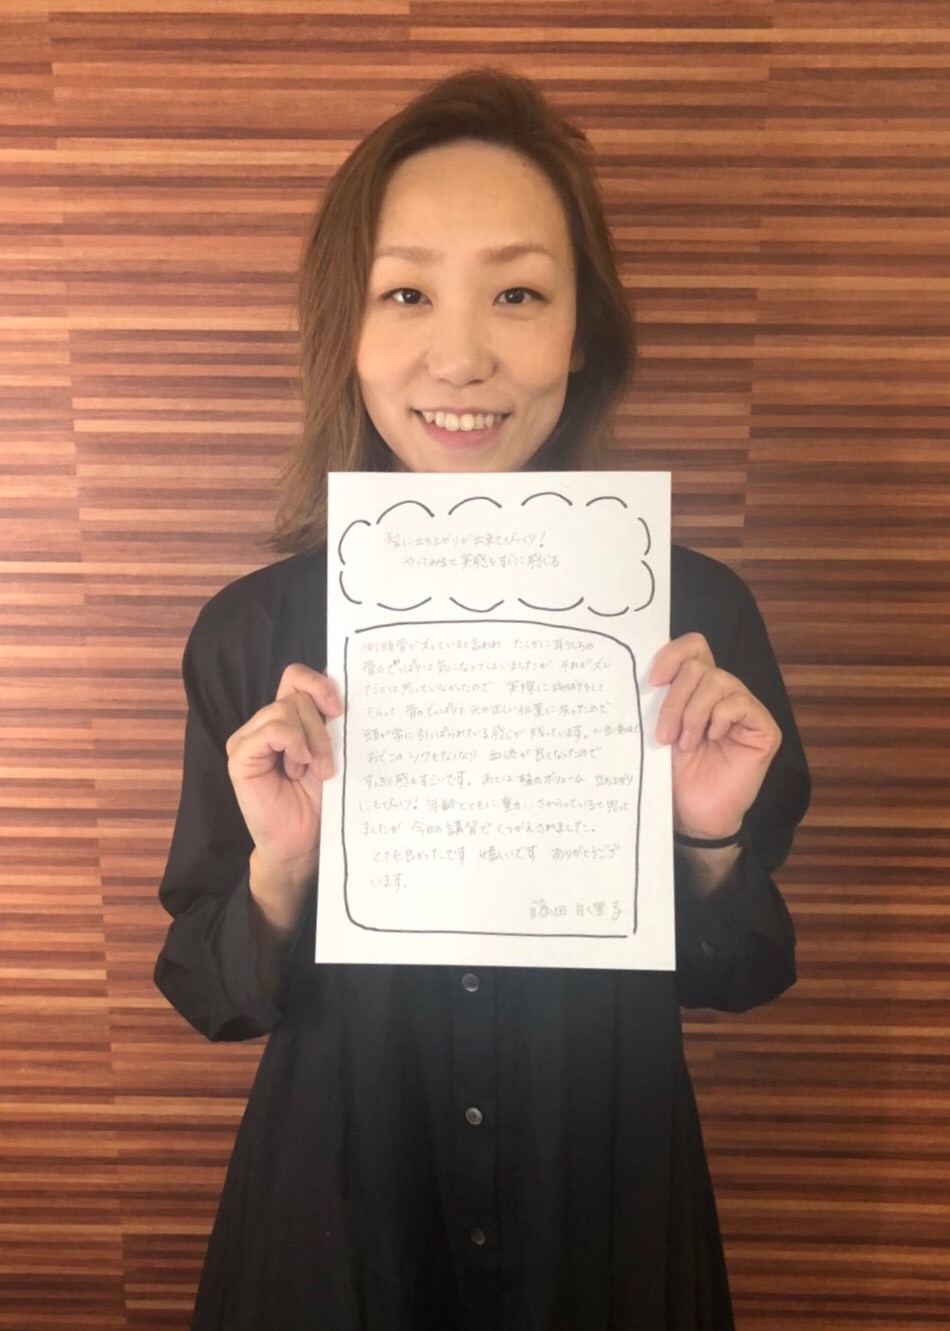 髪に立ち上がりが出来てびっくり!
やってみると実感をすぐに感じる
側頭骨がズレていると言われ たしかに耳うしろの
骨のでっぱりは気になってはいましたが、それがズレ
だとは思っていなかったので 実際に施術をして
もらって 骨のでっぱりも元の正しい位置に戻ったので
頭が常に引っぱられている感じが残っています。
おでこのシワもなくなり 血流が良くなったので
すっきり感もすごいです。あとは髪のボリューム 立ち上がり
にもびっくり! 年齢とともに重力にさからっていると思って
ましたが、今日の講習でくつがえされました。
とても良かったです 嬉しいです ありがとうござ
います。
藤田 里子